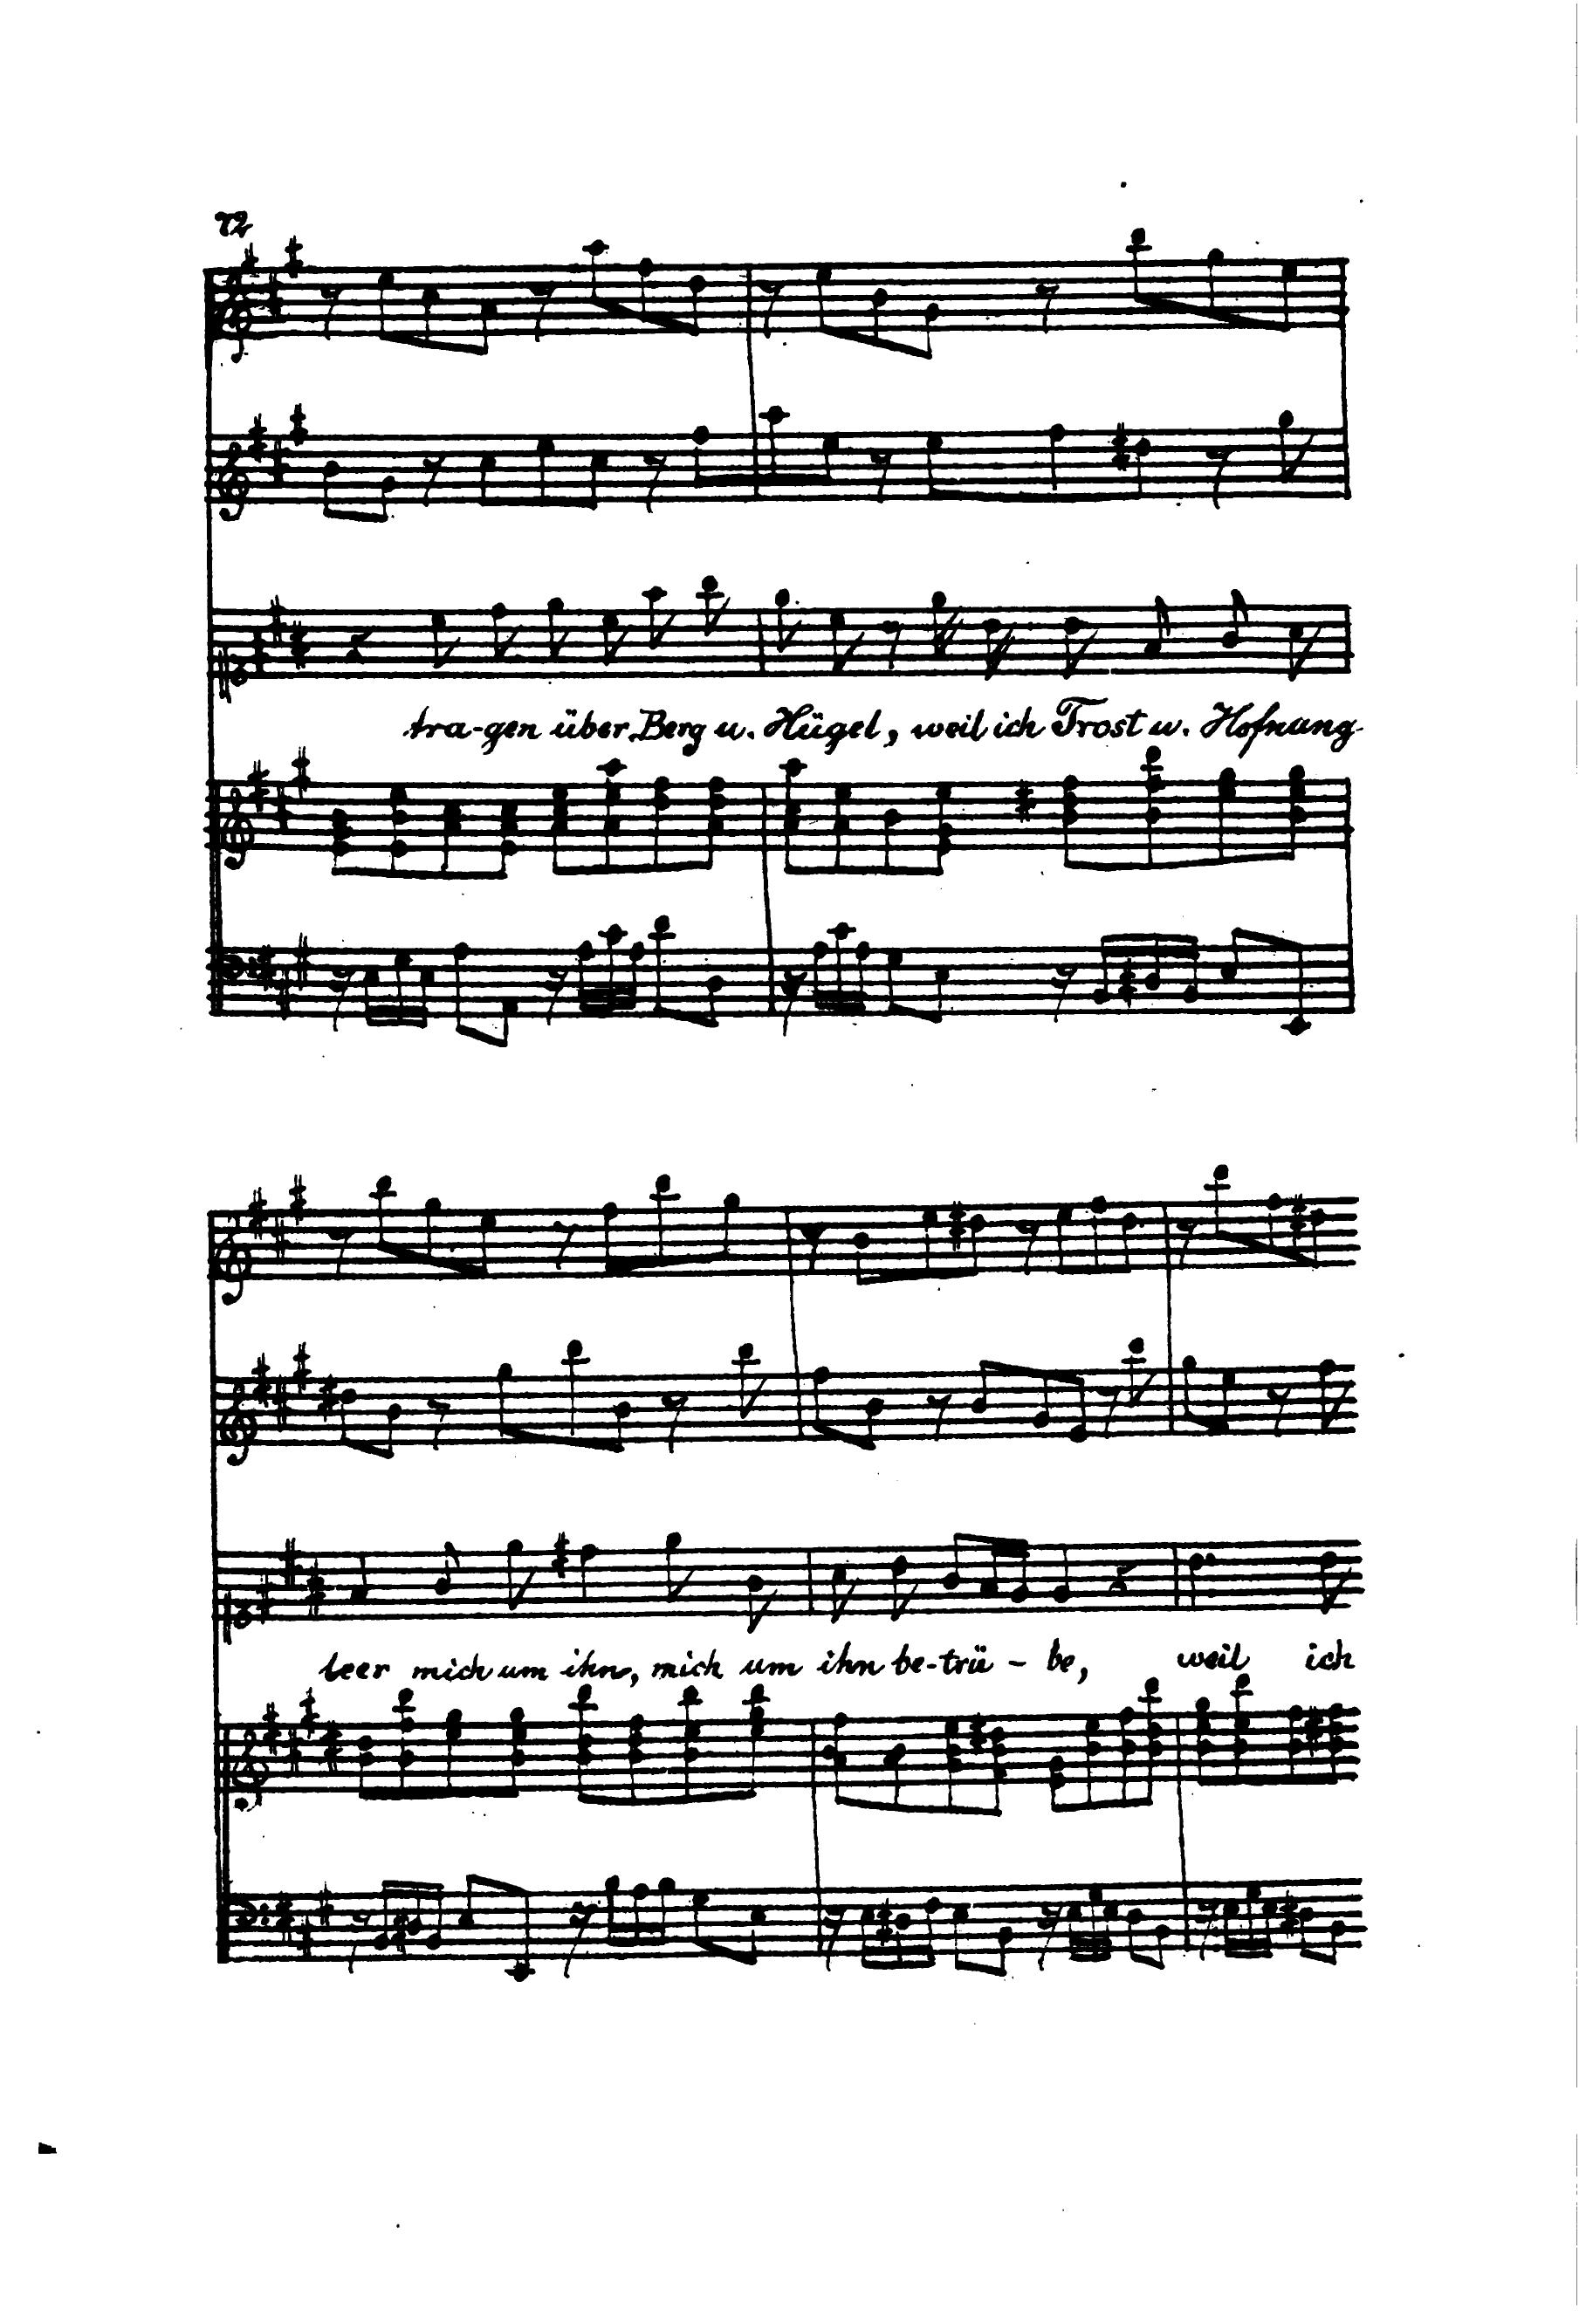 72
tra-gen über Berg u. Hügel, weil ich Trost u. Hofnung-
leer mich um ihn, mich um ihn be-trü-be, weil ich